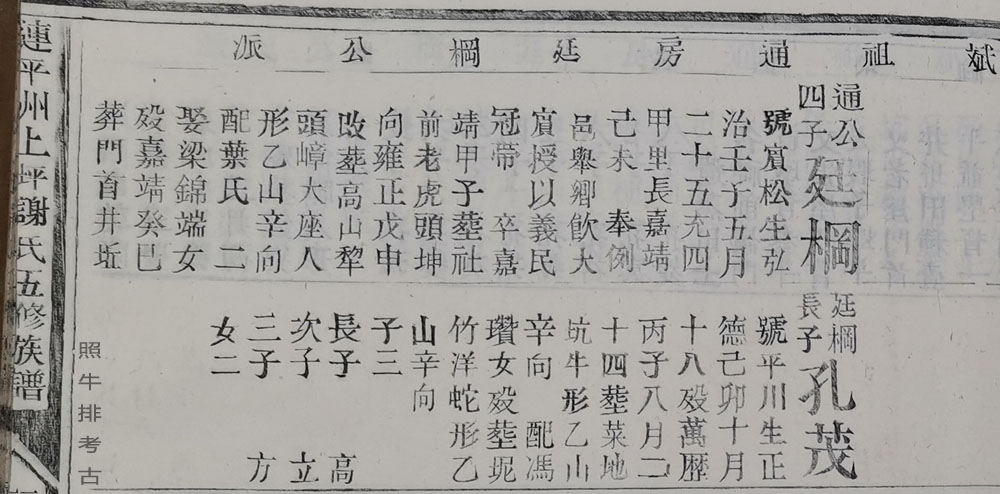 斌祖通房廷㭎公派
通公
四子
廷㭎
號賔松生弘
治壬子五月
二十五充四
甲里長嘉靖
己未 奉例
邑舉鄉飲大
賔授以義民
冠帶 卒嘉
靖甲子塟社
前老虎頭坤
向雍正戊申
改塟高山犂
頭嶂大座人
形乙山辛向
配葉氏 二
娶梁錦端女
歿嘉靖癸巳
葬門首井坵
廷㭎
長子
孔茂
號平川生正
德己卯十月
十八歿萬歴
丙子八月二
十四塟菜地
坑牛形乙山
辛向 配馮
瓚女歿塟坭
竹洋蛇形乙
山辛向
子三
長子 高
次子 立
三子 方
女二
連平州上坪謝氏五修族譜
照牛排考古